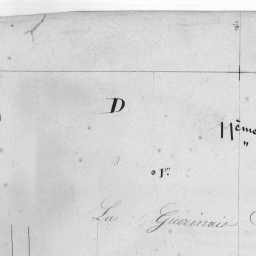 D
11ème
"
La Guérinais